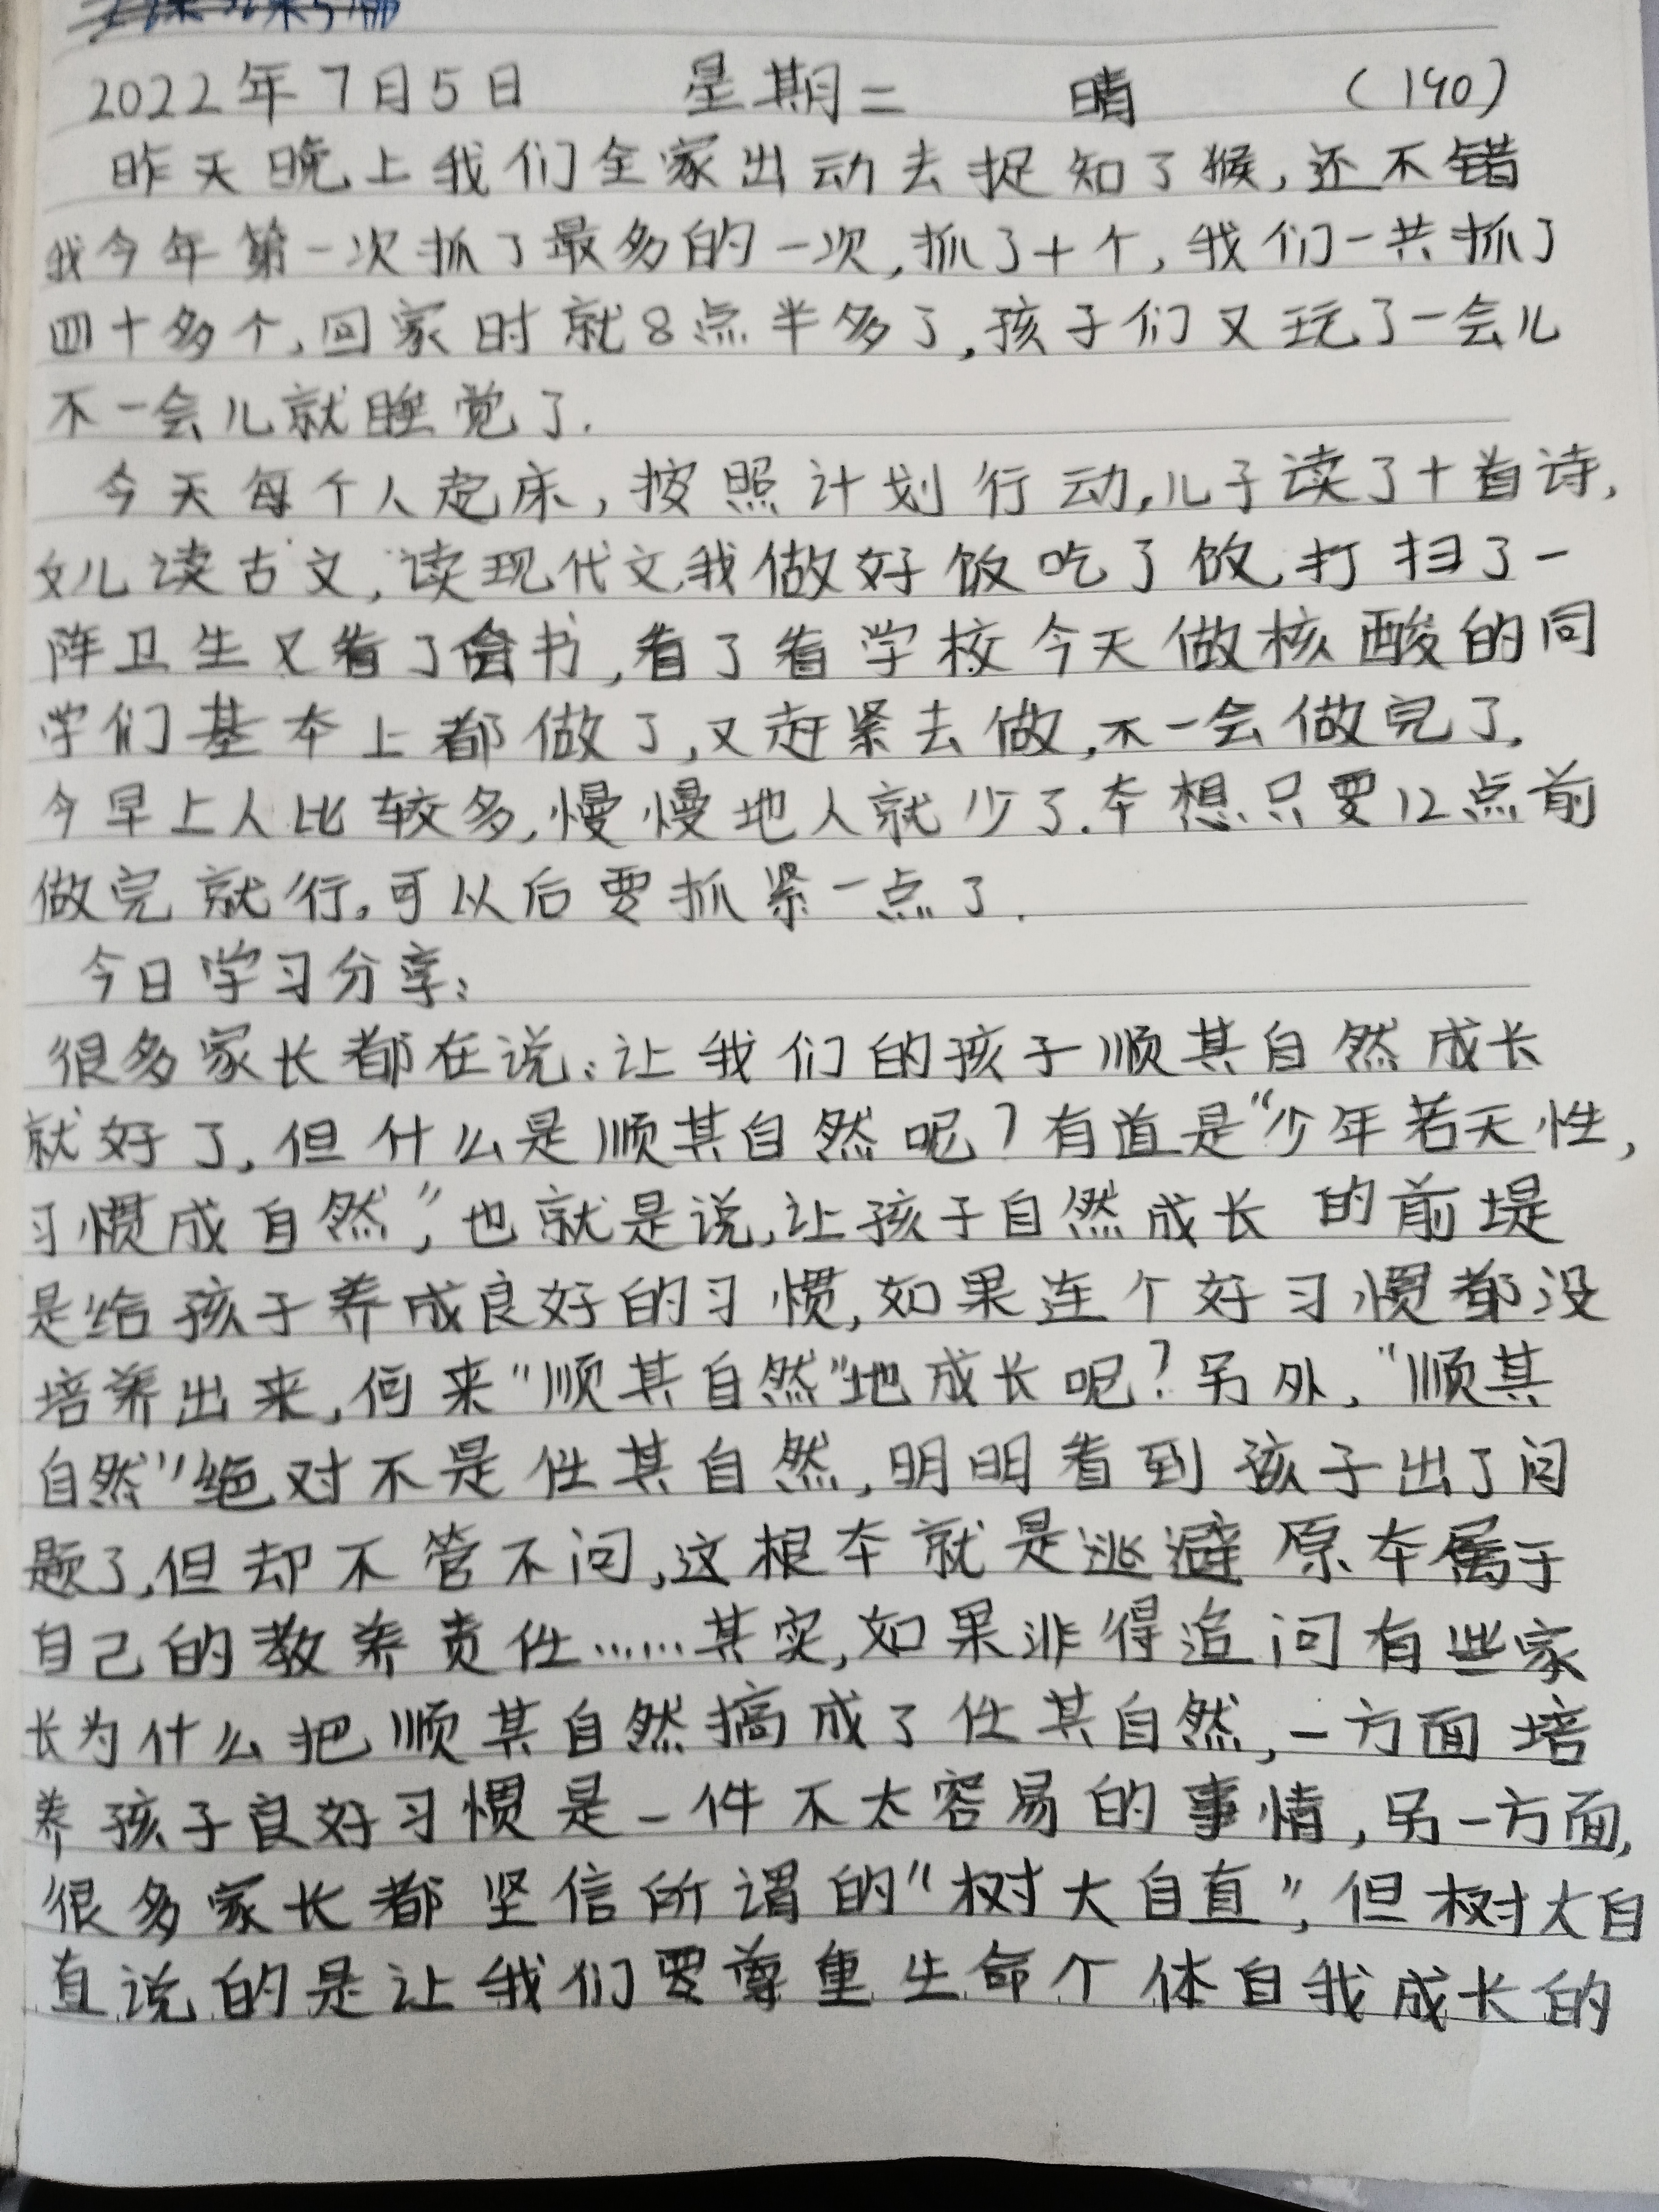 2022年7月5日 星期二 晴 (140)
昨天晚上我们全家出动去捉知了猴,还不错
我今年第一次抓了最多的一次,抓了十个,我们一共抓了
四十多个,回家时就8点半多了,孩子们又玩了一会儿
不一会儿就睡觉了.
今天每个人起床,按照计划行动,儿子读了十首诗,
女儿读古文,读现代文,我做好饭吃了饭,打扫了一
阵卫生又看了会书,看了看学校今天做核酸的同
学们基本上都做了,又赶紧去做,不一会做完了.
今早上人比较多,慢慢地人就少了.本想只要12点前
做完就行。可以后要抓紧一点了.
今日学习分享:
很多家长都在说:让我们的孩子顺其自然成长
就好了,但什么是顺其自然呢?有道是“少年若天性,
习惯成自然”,也就是说,让孩子自然成长的前堤
是给孩子养成良好的习惯,如果连个好习惯都没
培养出来,何来“顺其自然”地成长呢?另外,“顺其
自然”绝对不是任其自然,明明看到孩子出了问
题了,但却不管不问,这根本就是逃避原本属于
自己的教养责任……其实,如果非得追问有些家
长为什么把顺其自然搞成了任其自然,一方面培
养孩子良好习惯是一件不太容易的事情,另一方面,
很多家长都坚信所谓的“树大自直”,但树大自
直说的是让我们要尊重生命个体自我成长的